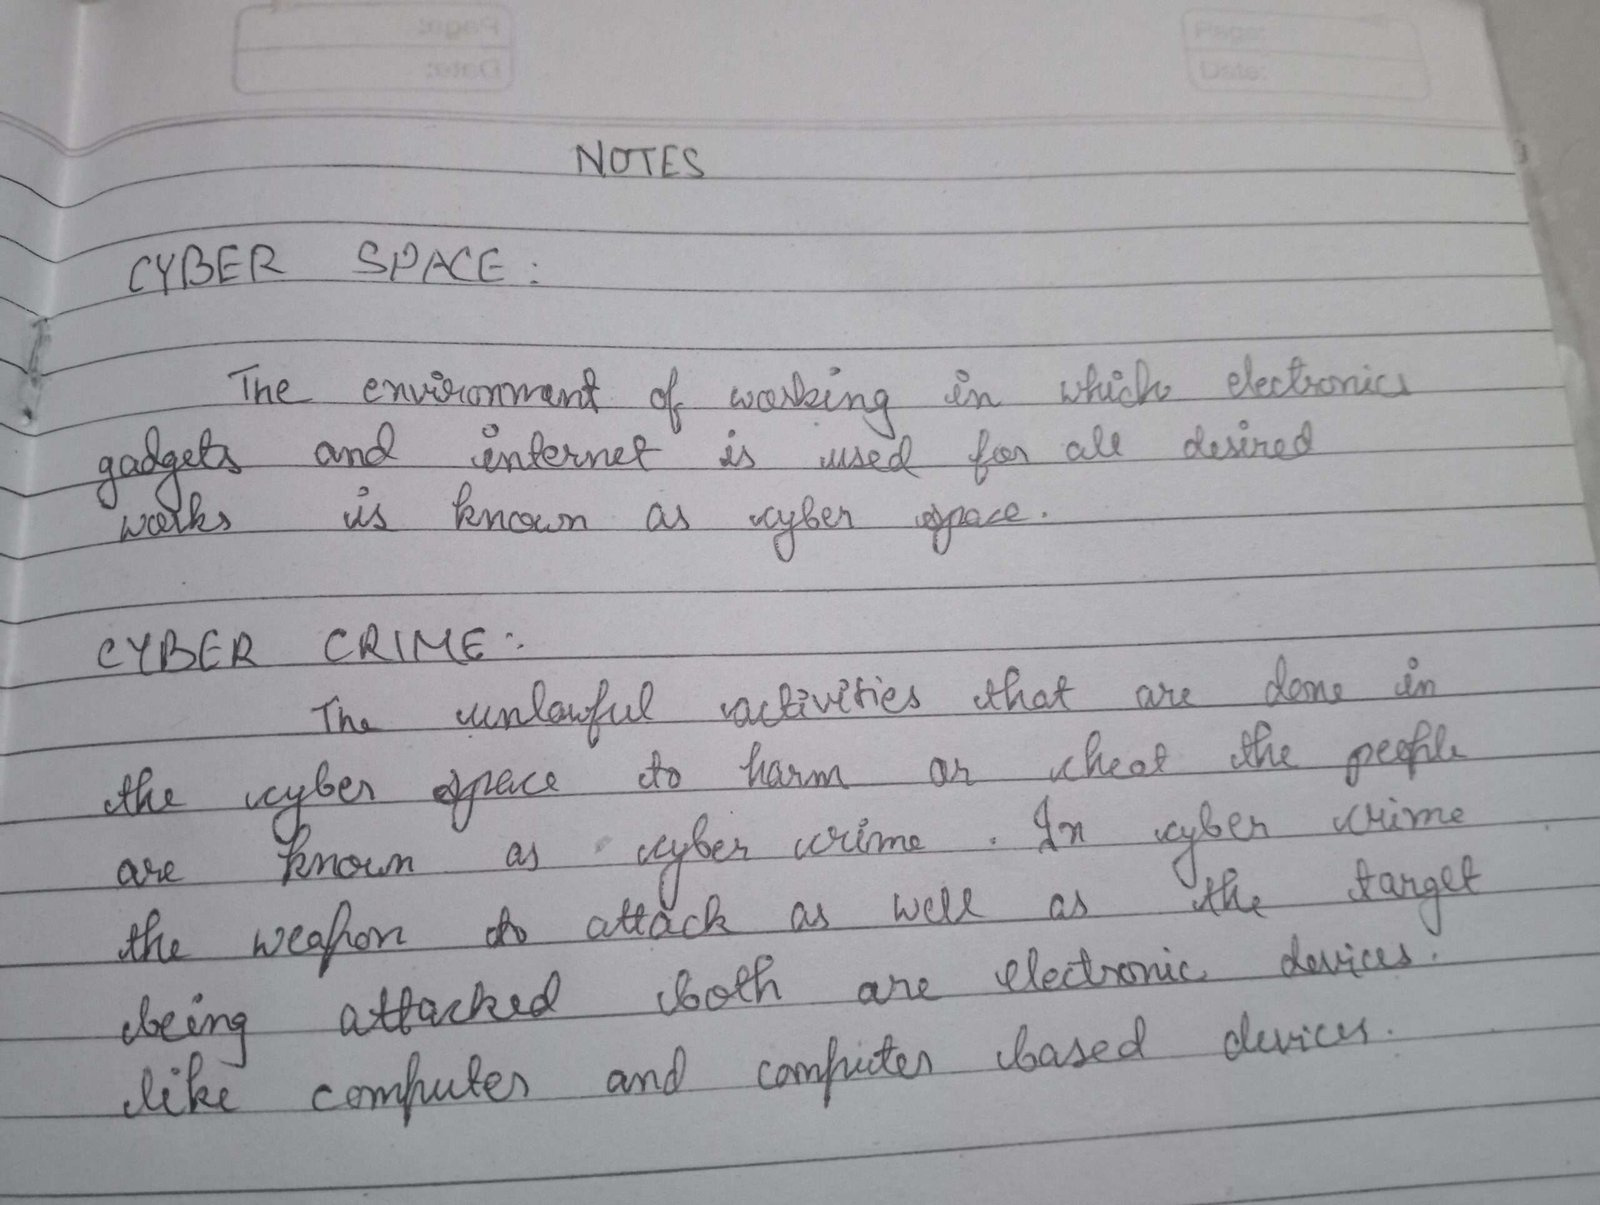 Page:
Date:
NOTES
CYBER SPACE:
The environment of working in which electronics
gadgets and internet is used for all desired
works is known as cyber space.
CYBER CRIME:
The unlawful activities that are done in
the cyber space to harm or cheat the people
are known as cyber crime. In cyber crime
the weapon to attack as well as the target
being attacked both are electronic devices.
like computer and computer based devices.